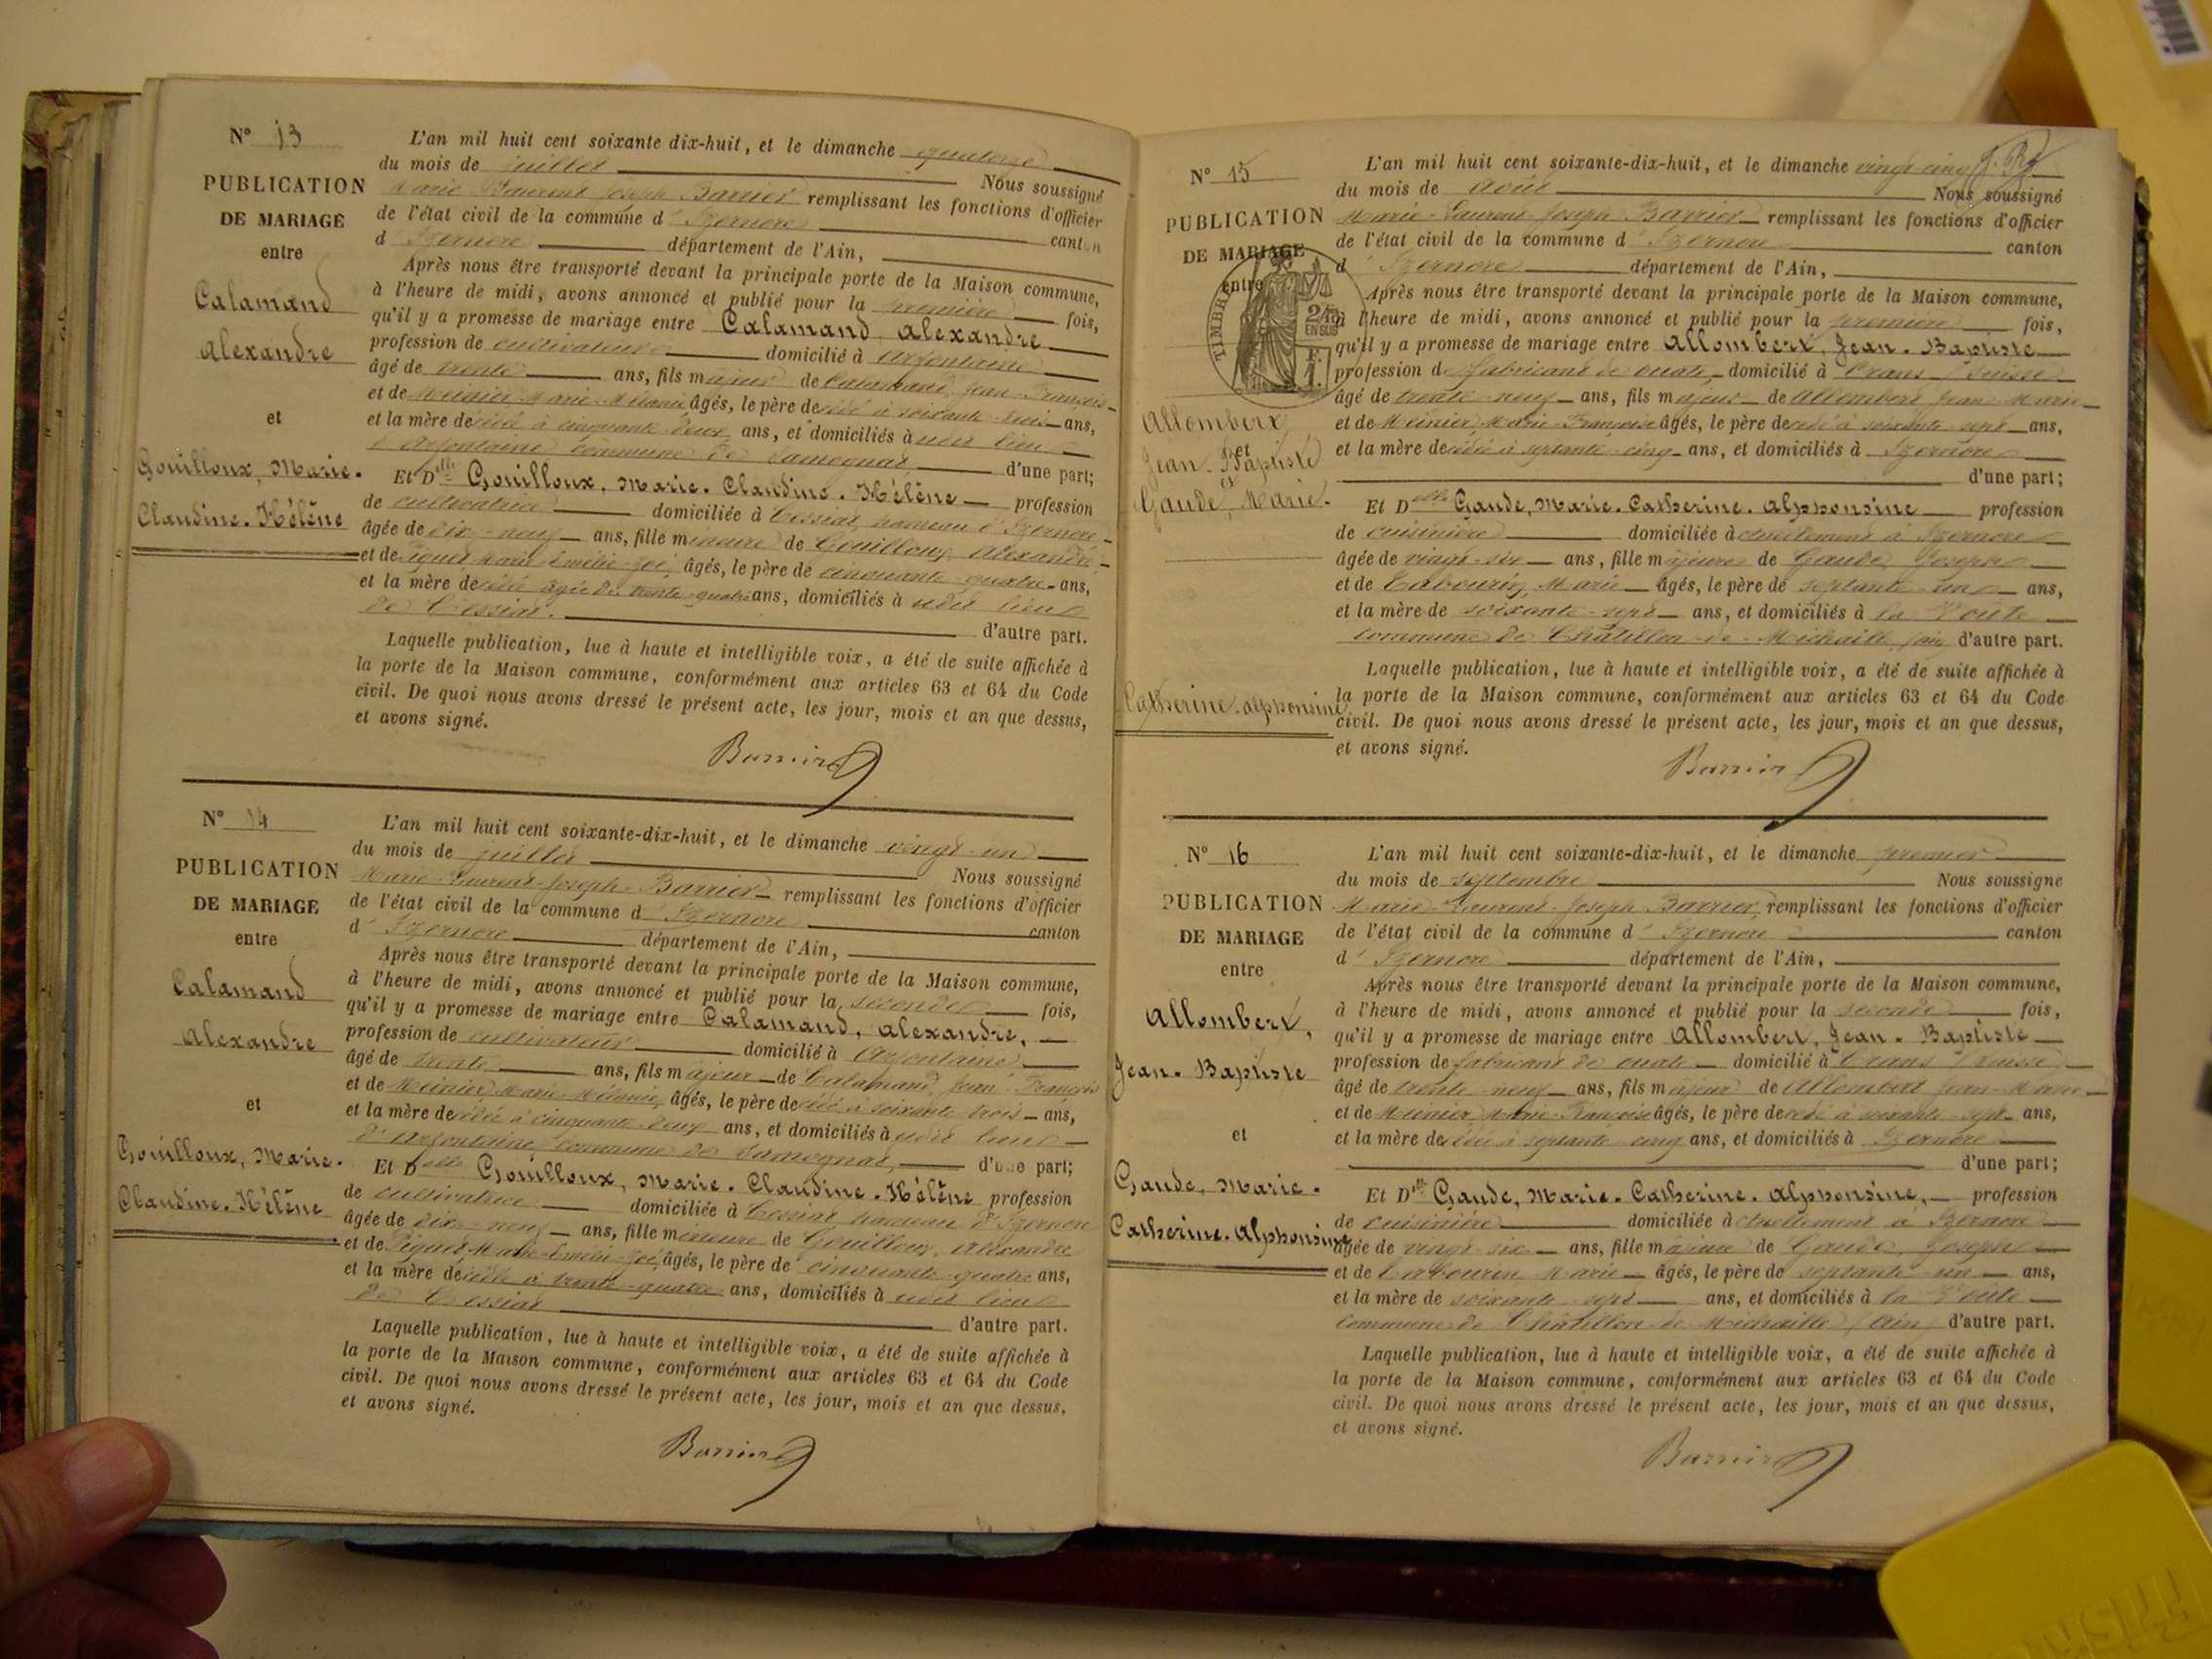 N° 13
PUBLICATION
DE MARIAGE
entre
Calamand
Alexandre
et
Gouilloux, Marie.
Claudine. Hélène
L'an mil huit cent soixante dix-huit, et le dimanche quatorze
du mois de juillet Nous soussigné
Marie Laurent Joseph Barrier remplissant les fonctions d'officier
de l'état civil de la commune d'Izernore canton
d'Izernore département de l'Ain,
Après nous être transporté devant la principale porte de la Maison commune,
à l'heure de midi, avons annoncé et publié pour la première fois,
qu'il y a promesse de mariage entre Calamand Alexandre
profession de cultivateur domicilié à Arfontaine
âgé de trente ans, fils majeur de Calamand, Jean-François
et de Meinier, Marie-Mélanie âgés, le père décédé à soixante-trois ans,
et la mère décédée à cinquante-deux ans, et domiciliés à udit lieu
d'Arfontaine commune de Samognat, d'une part;
Et Dlle Gouilloux, Marie. Claudine. Hélène profession
de cultivatrice domiciliée à Cessiat, hameau d'Izernore
âgée de dix-neuf ans, fille mineure de Gouilloux, Alexandre
et de Piquet Marie Emélie Zoé, âgés, le père de cinquante-quatre ans,
et la mère décédée âgée de trente-quatre ans, domiciliés à udit lieu
de Cessiat. d'autre part.
Laquelle publication, lue à haute et intelligible voix, a été de suite affichée à
la porte de la Maison commune, conformément aux articles 63 et 64 du Code
civil. De quoi nous avons dressé le présent acte, les jour, mois et an que dessus,
et avons signé.
Barrier
N° 14
PUBLICATION
DE MARIAGE
entre
Calamand
Alexandre
et
Gouilloux, Marie.
Claudine. Hélène
L'an mil huit cent soixante-dix-huit, et le dimanche vingt-un
du mois de juillet Nous soussigné
Marie-Laurent-Joseph-Barrier remplissant les fonctions d'officier
de l'état civil de la commune d'Izernore canton
d'Izernore département de l'Ain,
Après nous être transporté devant la principale porte de la Maison commune,
à l'heure de midi, avons annoncé et publié pour la seconde fois,
qu'il y a promesse de mariage entre Calamand, Alexandre,
profession de cultivateur domicilié à Arfontaine
âgé de trente ans, fils majeur de Calamand, Jean François
et de Meinier, Marie-Mélanie, âgés, le père décédé à soixante trois ans,
et la mère décédée à cinquante-deux ans, et domiciliés à udit lieu
d'Arfontaine commune de Samognat, d'une part;
Et Delle Gouilloux, Marie. Claudine. Hélène profession
de cultivatrice domiciliée à Cessiat hameau d'Izernore
âgée de dix-neuf ans, fille mineure de Gouilloux, Alexandre
et de Piquet Marie-Emélie-Zoé, âgés, le père de cinquante-quatre ans,
et la mère décédée à trente-quatre ans, domiciliés à udit lieu
de Cessiat d'autre part.
Laquelle publication, lue à haute et intelligible voix, a été de suite affichée à
la porte de la Maison commune, conformément aux articles 63 et 64 du Code
civil. De quoi nous avons dressé le présent acte, les jour, mois et an que dessus,
et avons signé.
Barrier
N° 15
PUBLICATION
DE MARIAGE
entre
TIMBRE
2/10
EN SUS
F.
1.
Allombert
et
Jean. Baptiste
et
Gaude, Marie.
Catherine. Alphonsine
L'an mil huit cent soixante-dix-huit, et le dimanche vingt cinq
du mois de Août Nous soussigné
Marie-Laurent Joseph Barrier remplissant les fonctions d'officier
de l'état civil de la commune d'Izernore canton
d'Izernore département de l'Ain,
Après nous être transporté devant la principale porte de la Maison commune,
à l'heure de midi, avons annoncé et publié pour la première fois,
qu'il y a promesse de mariage entre Allombert, Jean. Baptiste
profession de fabricant de ouate domicilié à Crans (Suisse
âgé de trente-neuf ans, fils majeur de Allombert Jean-Marie
et de Meinier Marie-Françoise âgés, le père décédé à soixante-sept ans,
et la mère décédée à septante-cinq ans, et domiciliés à Izernore
d'une part;
Et Delle Gaude, Marie. Catherine. Alphonsine profession
de cuisinière domiciliée actuellement à Izernore
âgée de vingt-six ans, fille majeure de Gaude, Joseph
et de Tabourin, Marie âgés, le père de septante-un ans,
et la mère de soixante-sept ans, et domiciliés à la Voute
commune de Châtillon-de-Michaille (Ain) d'autre part.
Laquelle publication, lue à haute et intelligible voix, a été de suite affichée à
la porte de la Maison commune, conformément aux articles 63 et 64 du Code
civil. De quoi nous avons dressé le présent acte, les jour, mois et an que dessus,
et avons signé.
Barrier
N° 16
PUBLICATION
DE MARIAGE
entre
Allombert,
Jean. Baptiste
et
Gaude, Marie.
Catherine. Alphonsine
L'an mil huit cent soixante-dix-huit, et le dimanche premier
du mois de septembre Nous soussigné
Marie-Laurent-Joseph Barrier, remplissant les fonctions d'officier
de l'état civil de la commune d'Izernore canton
d'Izernore département de l'Ain,
Après nous être transporté devant la principale porte de la Maison commune,
à l'heure de midi, avons annoncé et publié pour la seconde fois,
qu'il y a promesse de mariage entre Allombert, Jean. Baptiste
profession de fabricant de ouate domicilié à Crans (Suisse)
âgé de trente-neuf ans, fils majeur de Allombert Jean-Marie
et de Meinier Marie-Françoise âgés, le père décédé à soixante-sept ans,
et la mère décédée à septante-cinq ans, et domiciliés à Izernore
d'une part;
Et Dlle Gaude, Marie. Catherine. Alphonsine, profession
de cuisinière domiciliée actuellement à Izernore
âgée de vingt-six ans, fille majeure de Gaude, Joseph
et de Tabourin Marie âgés, le père de septante-un ans,
et la mère de soixante-sept ans, et domiciliés à la Voute
commune de Châtillon-de-Michaille (Ain) d'autre part.
Laquelle publication, lue à haute et intelligible voix, a été de suite affichée à
la porte de la Maison commune, conformément aux articles 63 et 64 du Code
civil. De quoi nous avons dressé le présent acte, les jour, mois et an que dessus,
et avons signé.
Barrier